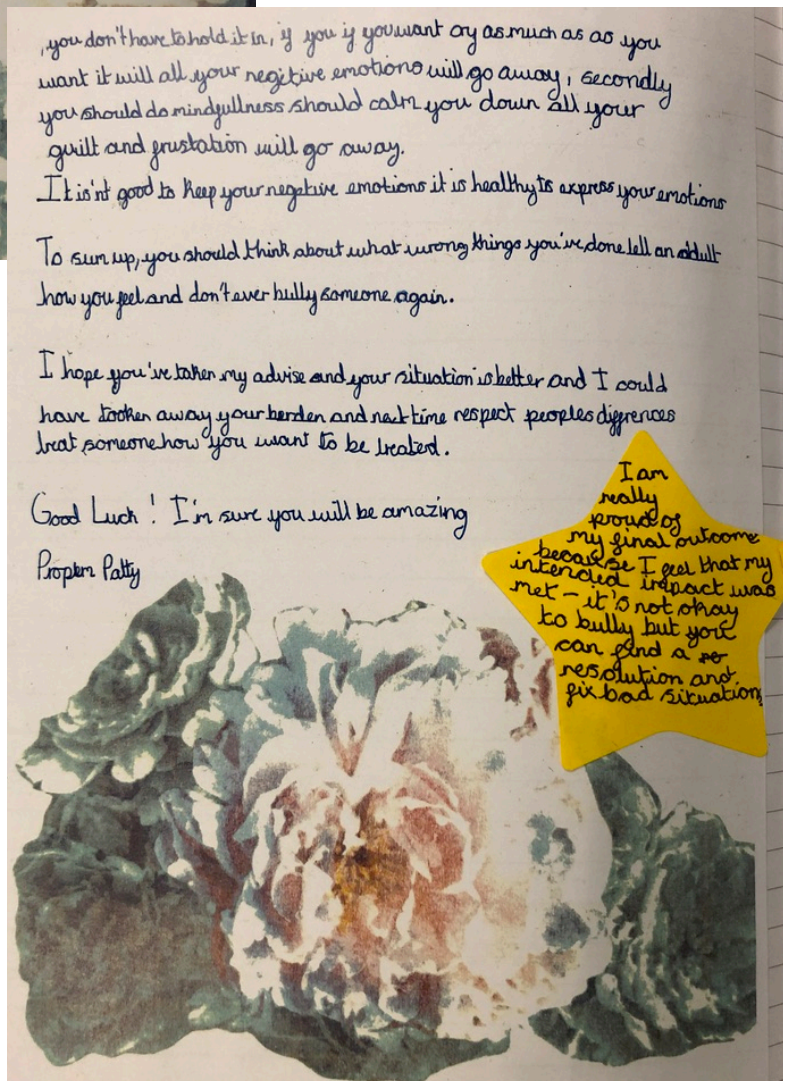 , you don't have to hold it in, if you if you want cry as much as as you
want it will all your negitive emotions will go away, secondly
you should do mindfullness should calm you down all your
guilt and frustation will go away.
It is'nt good to keep your negative emotions it is healthy to express your emotions
To sum up, you should think about what wrong things you've done tell an adult
how you feel and don't ever bully someone again.
I hope you've taken my advise and your situation is better and I could
have tooken away your berden and next time respect peoples diffrences
treat someone how you want to be treated.
Good Luck! I'm sure you will be amazing
Problem Patty
I am
really
proud of
my final outcome
because I feel that my
intended impact was
met - it's not okay
to bully but you
can find a
resolution and
fix bad situations